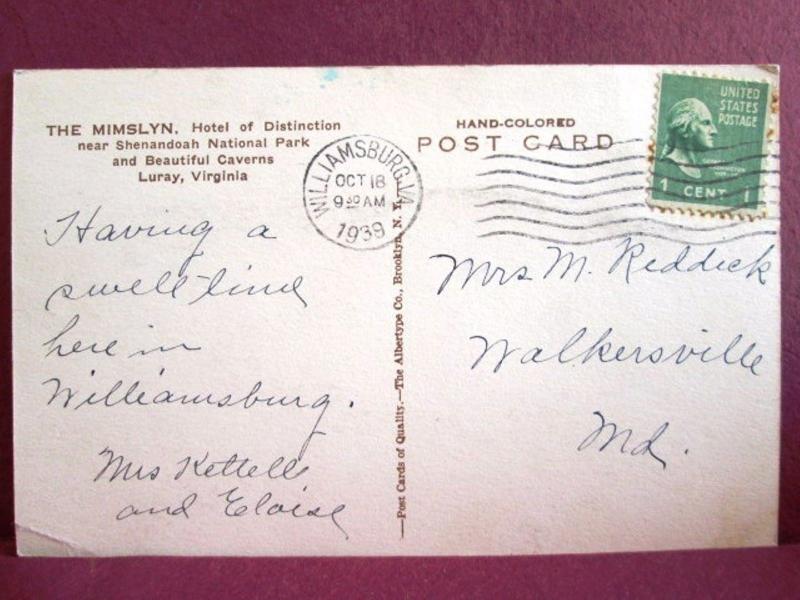 THE MIMSLYN, Hotel of Distinction
near Shenandoah National Park
and Beautiful Caverns
Luray, Virginia
Having a
swell time
here in
Williamsburg.
Mrs Kettell
and Eloise
—Post Cards of Quality.—The Albertype Co., Brooklyn, N. Y.
WILLIAMSBURG, VA
OCT 18
9 30 AM
1939
HAND-COLORED
POST CARD
UNITED
STATES
POSTAGE
1 CENT 1
Mrs M. Reddick
Walkersville
Md.